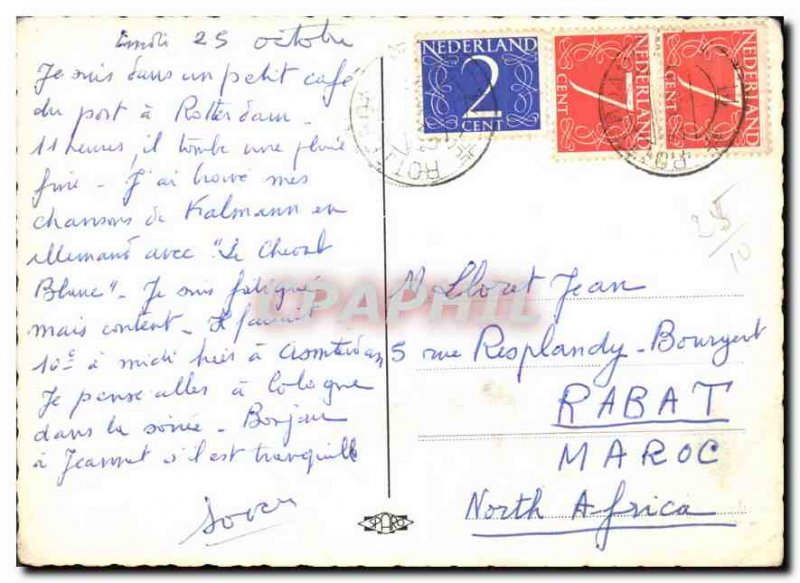 25 octobre
Je suis dans un petit café
du port à Rotterdam -
11 heures, il tombe une pluie
fine - J'ai trouvé mes
chansons de Kalmann en
allemand avec "Le Cheval
Blanc" - Je suis fatigué
mais content - Il faisait
10° à midi hier à Amsterdam
Je pense aller à Cologne
dans la soirée - Bonjour
à Jeannot s'il est tranquille
NEDERLAND
2
CENT
NEDERLAND
7
CENT
NEDERLAND
7
CENT
25/10
CPAPHIL
M. Lloret Jean
5 rue Resplandy - Bournazel
RABAT
MAROC
North Africa
SPARO